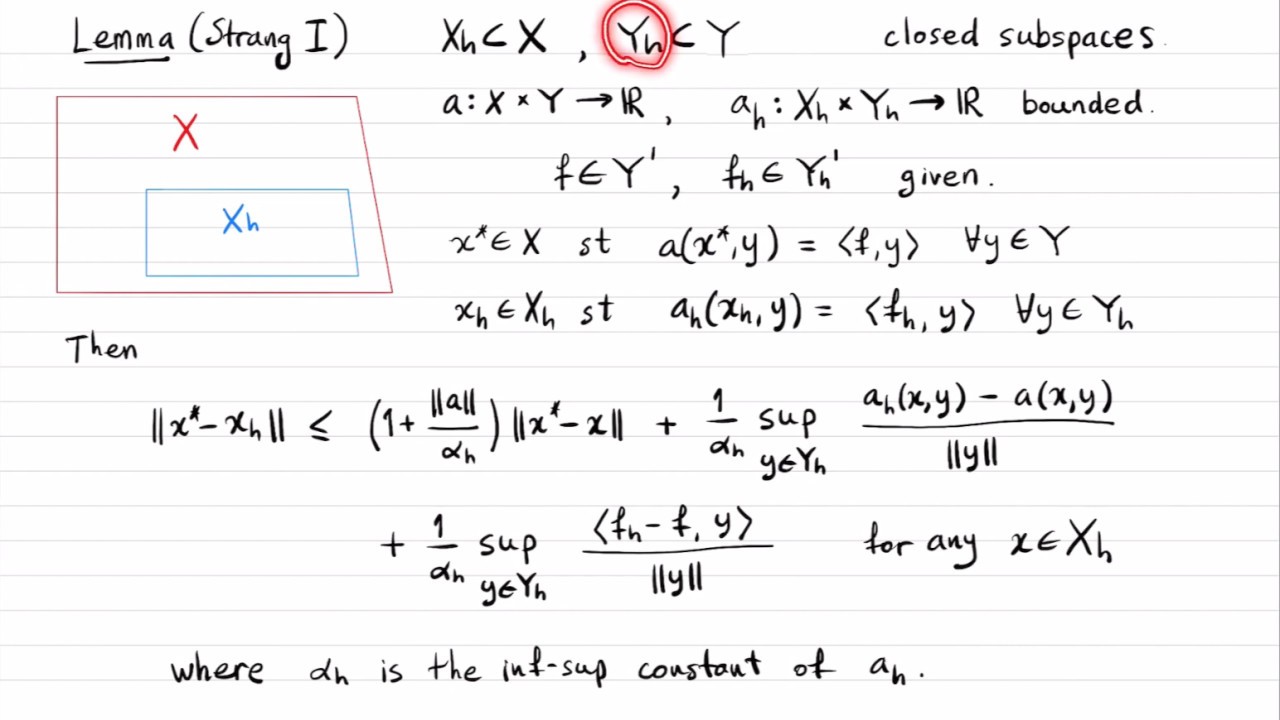 Lemma (Strang I) Xh ⊂ X , Yh ⊂ Y closed subspaces.
a : X × Y → ℝ , ah : Xh × Yh → ℝ bounded.
X
f ∈ Y' , fh ∈ Yh' given.
Xh
x* ∈ X st a(x*,y) = ⟨f,y⟩ ∀y ∈ Y
xh ∈ Xh st ah(xh,y) = ⟨fh,y⟩ ∀y ∈ Yh
Then
‖x* - xh‖ ≤ (1 + ‖a‖/αh) ‖x* - x‖ + 1/αh sup y∈Yh (ah(x,y) - a(x,y))/‖y‖
+ 1/αh sup y∈Yh ⟨fh - f, y⟩/‖y‖ for any x ∈ Xh
where αh is the inf-sup constant of ah.